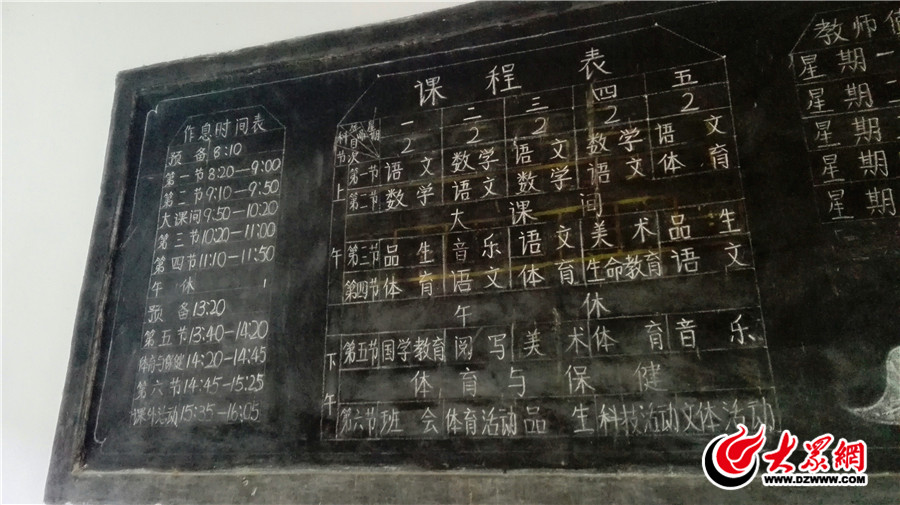 作息时间表
预备8:10
第一节8:20—9:00
第二节9:10—9:50
大课间9:50—10:20
第三节10:20—11:00
第四节11:10—11:50
午休
预备13:20
第五节13:40—14:20
体育与保健14:20—14:45
第六节14:45—15:25
课外活动15:35—16:05
课程表
一 二 三 四 五
2 2 2 2 2
节次 科目 星期
上午
第一节 语文 数学 语文 数学 语文
第二节 数学 语文 数学 语文 体育
大课间
第三节 品生 音乐 语文 美术 品生
第四节 体育 语文 体育 生命教育 语文
午休
下午
第五节 国学教育 阅写 美术 体育 音乐
体育与保健
第六节 班会 体育活动 品生 科技活动 文体活动
教师值
星期一
星期二
星期
星期
星期
大众网
WWW.DZWWW.COM